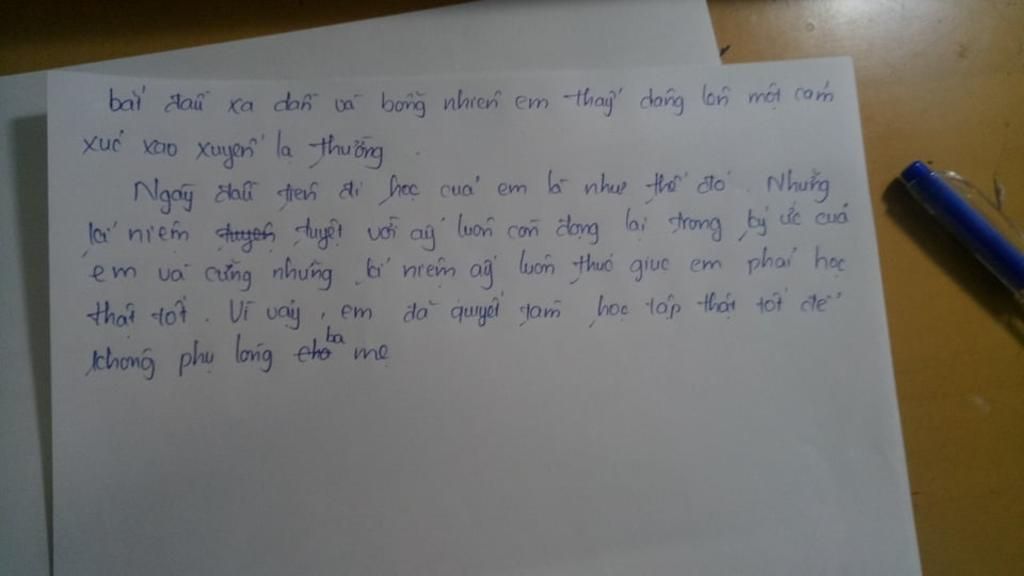 bắt đầu xa dần và bỗng nhiên em thấy dâng lên một cảm
xúc xao xuyến lạ thường.
Ngày đầu tiên đi học của em là như thế đó. Nhưng
kỉ niệm tuyệt vời ấy luôn còn đọng lại trong ký ức của
em và cũng những kỉ niệm ấy luôn thúc giục em phải học
thật tốt. Vì vậy, em đã quyết tâm học tập thật tốt để
không phụ lòng ba mẹ